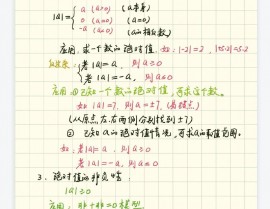 |a|= { a (a>0) (a本身)
0 (a=0) (a=0)
-a (a<0) (a的相反数)
应用:求一个数的绝对值. 如:|-2|=2, |+5.2|=5.2
反过来: { 若|a|=a, 则a≥0
若|a|=-a, 则a≤0
应用 ①已知一个数的绝对值,可求这个数.
如:|a|=7, 则a=±7. (易错点)
(从原点左右两侧分别找到±7)
② 已知a的绝对值情况,可求a的取值范围.
如:若|a|=a, 则a≥0
若|a|=-a, 则a≤0
3. 绝对值的非负性:
|a|≥0
应用: 非+非=0模型